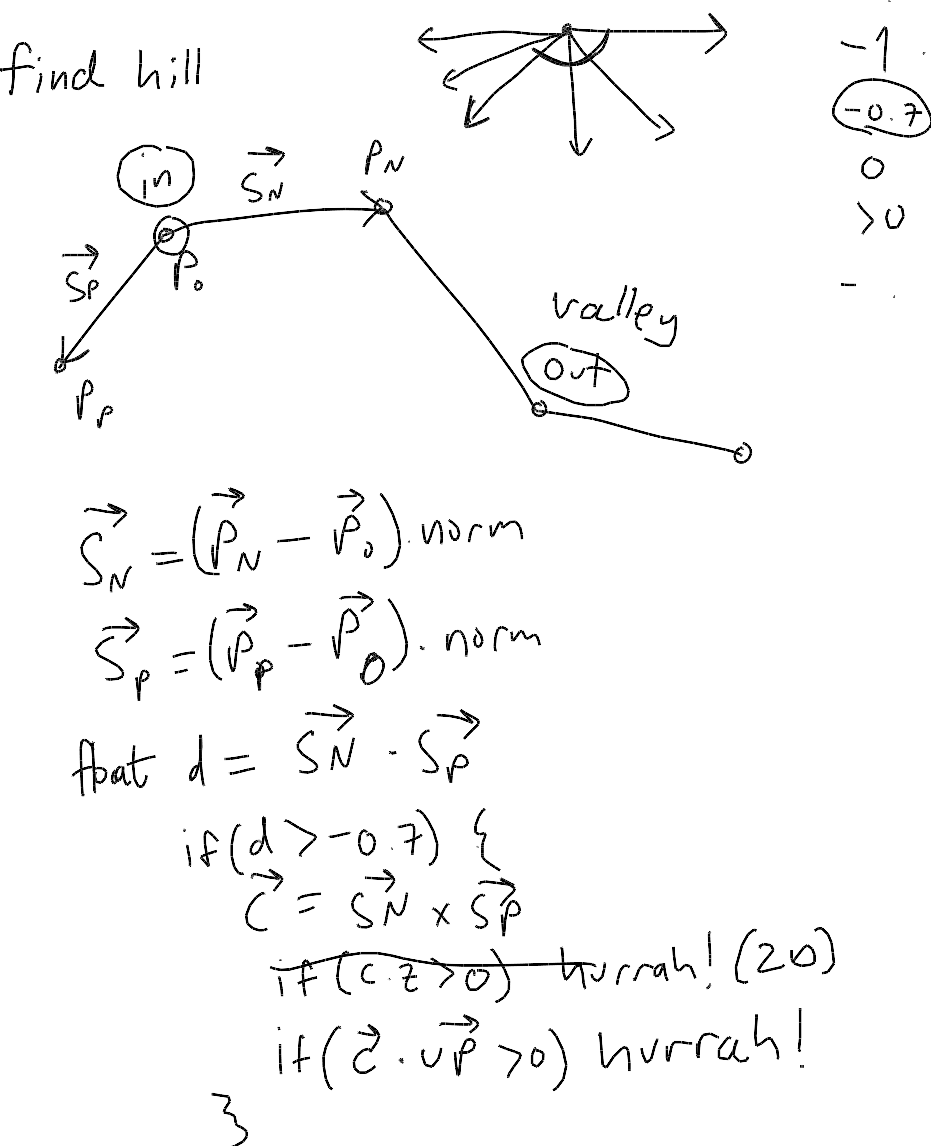 find hill
-1
-0.7
0
>0
-
in
S⃗N
PN
S⃗P
P₀
PP
valley
out
S⃗N = (P⃗N - P⃗₀).norm
S⃗P = (P⃗P - P⃗₀).norm
float d = S⃗N · S⃗P
if(d > -0.7) {
C⃗ = S⃗N x S⃗P
if(c.z > 0) hurrah! (2D)
if(c⃗ · UP⃗ > 0) hurrah!
}